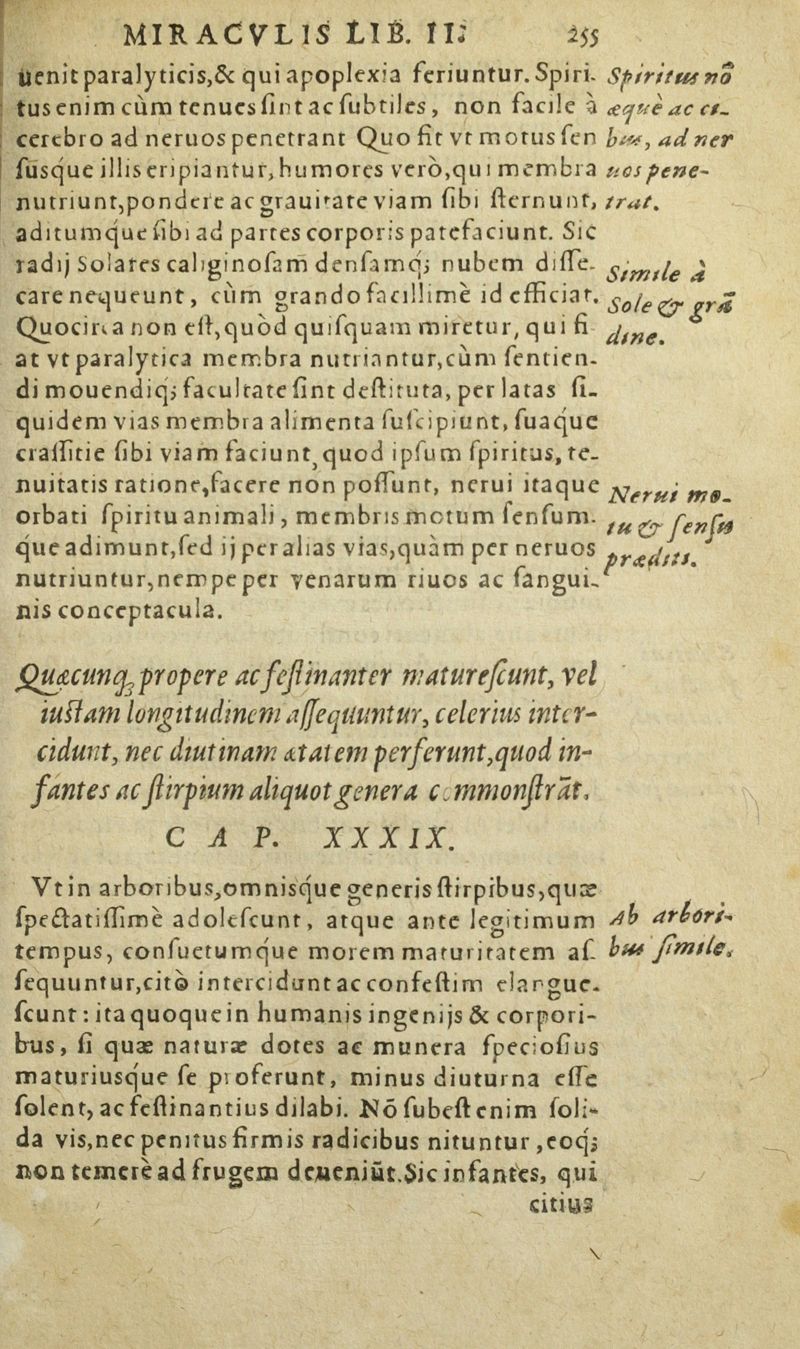 MIRACVLIS LIB. II. 255
uenit paralyticis,& qui apoplexia feriuntur. Spiri-
tus enim cùm tenues sint ac subtiles, non facile à
cerebro ad neruos penetrant Quo fit vt motus sen
susque illis eripiantur, humores verò, qui membra
nutriunt, pondere ac grauitate viam sibi sternunt,
aditumque sibi ad partes corporis patefaciunt. Sic
radij Solares caliginosam densamq; nubem disse-
care nequeunt, cùm grando facillimè id efficiat.
Quocirca non est, quòd quisquam miretur, qui fi
at vt paralytica membra nutriantur, cùm sentien-
di mouendiq; facultate sint destituta, per latas si-
quidem vias membra alimenta suscipiunt, suaque
crassitie sibi viam faciunt, quod ipsum spiritus, te-
nuitatis ratione, facere non possunt, nerui itaque
orbati spiritu animali, membris motum sensum-
que adimunt, sed ij per alias vias, quàm per neruos
nutriuntur, nempe per venarum riuos ac sangui-
nis conceptacula.
Spiritus nō
æquè ac ce-
bus, ad ner
uos pene-
trat.
Simile à
Sole & grā
dine.
Nerui mo-
tu & sensu
præditi.
Quæcunq; propere ac festinanter maturescunt, vel
iustam longitudinem assequuntur, celerius inter-
cidunt, nec diutinam ætatem perferunt, quod in-
fantes ac stirpium aliquot genera commonstrāt.
CAP. XXXIX.
Vt in arboribus, omnisque generis stirpibus, quæ
spectatissimè adolescunt, atque ante legitimum
tempus, consuetumque morem maturitatem as-
sequuntur, citò intercidunt ac confestim elangue-
scunt: ita quoque in humanis ingenijs & corpori-
bus, si quæ naturæ dotes ac munera speciosius
maturiusque se proferunt, minus diuturna esse
solent, ac festinantius dilabi. Nō subest enim soli-
da vis, nec penitus firmis radicibus nituntur, eoq;
non temerè ad frugem deueniūt. Sic infantes, qui
Ab arbori-
bus simile.
citius